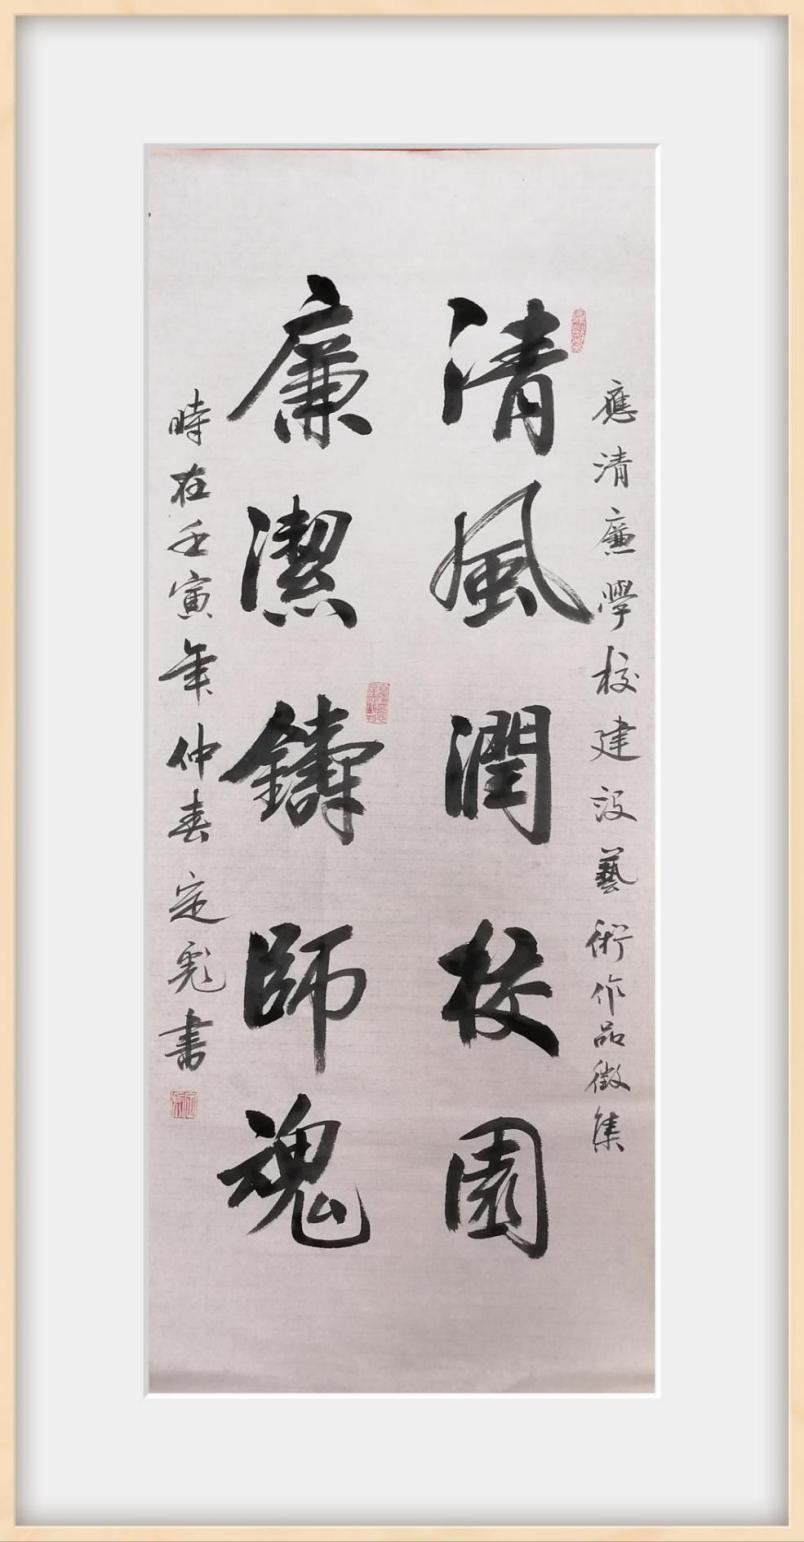 應清廉學校建設藝術作品徵集
清風潤校園
廉潔鑄師魂
時在壬寅年仲春定彪書